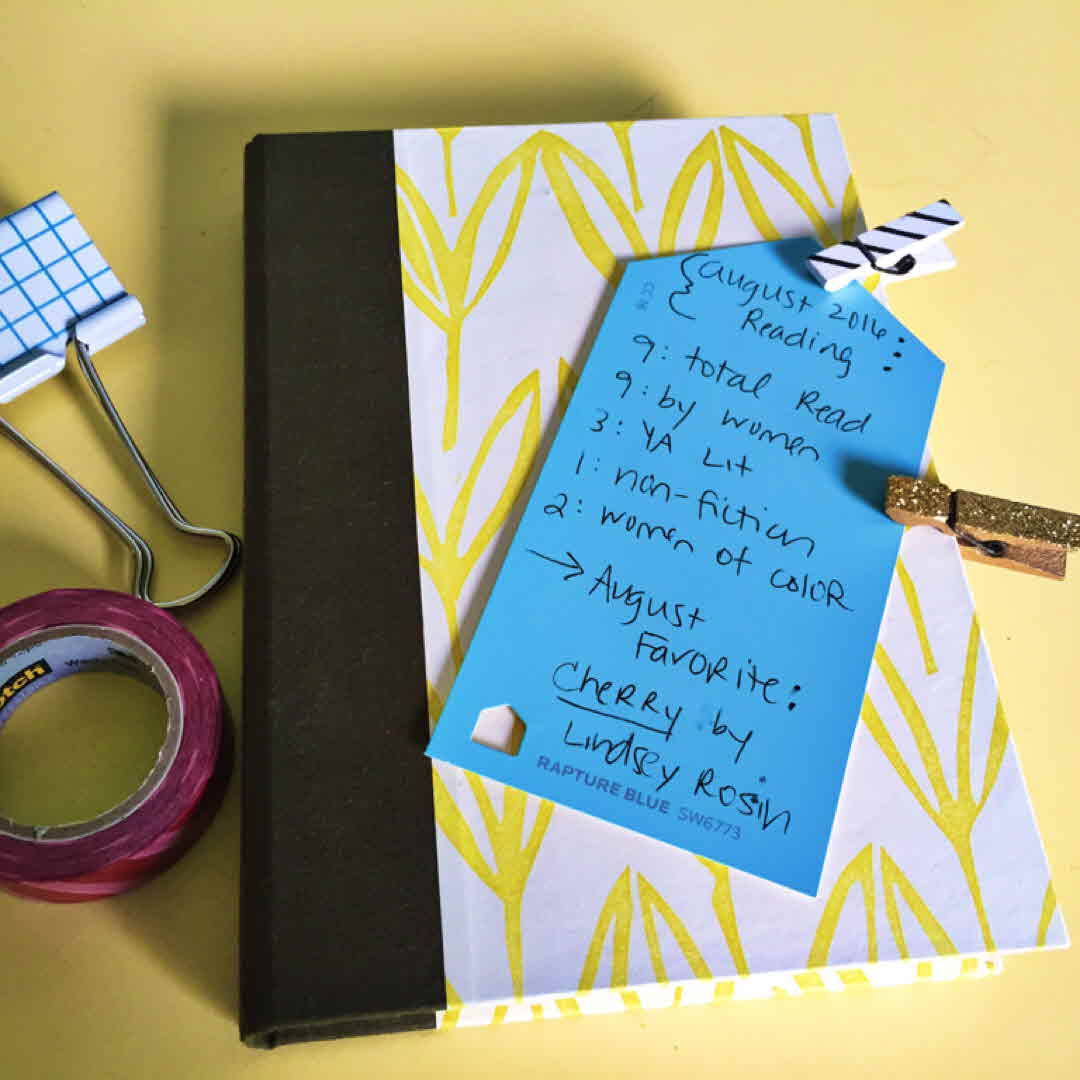 august 2016
Reading:
9: total Read
9: by women
3: YA Lit
1: non-fiction
2: women of color
→ August
Favorite:
Cherry by
Lindsey Rosin
RAPTURE BLUE SW6773